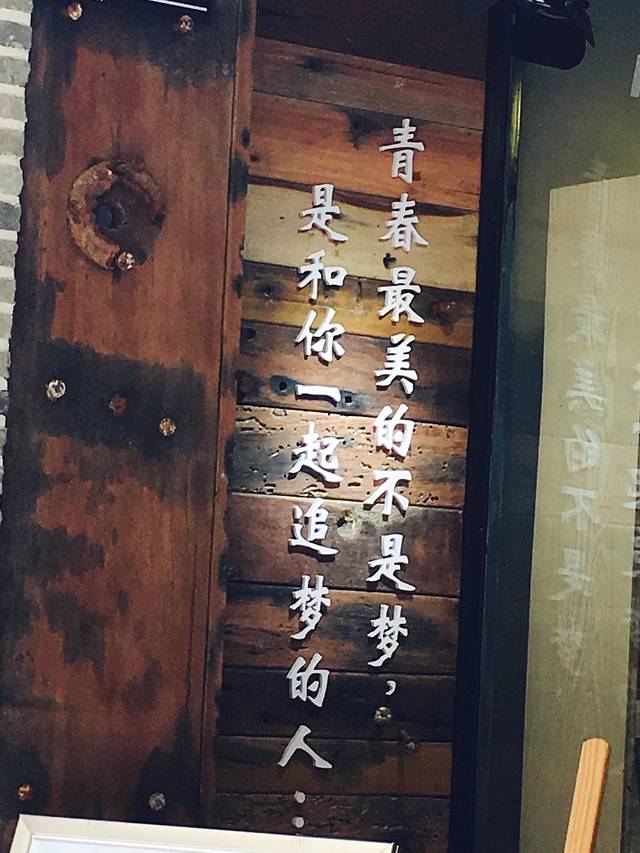 青春最美的不是梦,
是和你一起追梦的人…